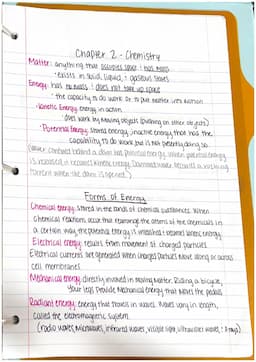 Chapter 2 - Chemistry
Matter: anything that occupies space & has mass
• exists in solid, liquid, & gaseous states
Energy: has no mass & does not take up space
• the capacity to do work or to put matter into motion
• Kinetic Energy: energy in action
• does work by moving objects (pushing on other objects)
• Potential Energy: stored energy, inactive energy that has the
capability to do work but is not presently doing so
(water confined behind a dam has potential energy. When potential energy
is released, it becomes kinetic energy. Dammed water becomes a rushing
torrent when the dam is opened)
Forms of Energy
Chemical energy: stored in the bonds of chemical substances. When
chemical reactions occur that rearrange the atoms of the chemicals in
a certain way, the potential energy is unleashed & becomes kinetic energy
Electrical energy: results from movement of charged particles.
Electrical currents are generated when charged particles move along or across
cell membranes
Mechanical energy: directly involved in moving matter. Riding a bicycle,
your legs provide mechanical energy that moves the pedals
Radiant energy: energy that travels in waves. Waves vary in length,
called the electromagnetic system
(radio waves, microwaves, infrared waves, visible light, ultraviolet waves, & x-rays)